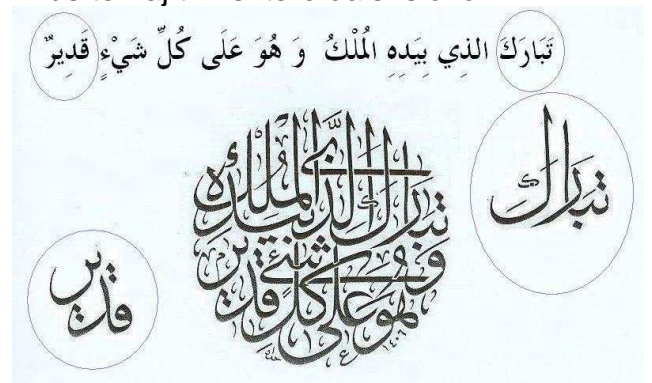 تَبَارَكَ الذِي بِيَدِهِ المُلْكُ وَ هُوَ عَلَى كُلِّ شَيْءٍ قَدِيرٌ
تبارك
تبارك الذي بيده الملك
وهو على كل شيء قدير
١٤٠٦
قدير